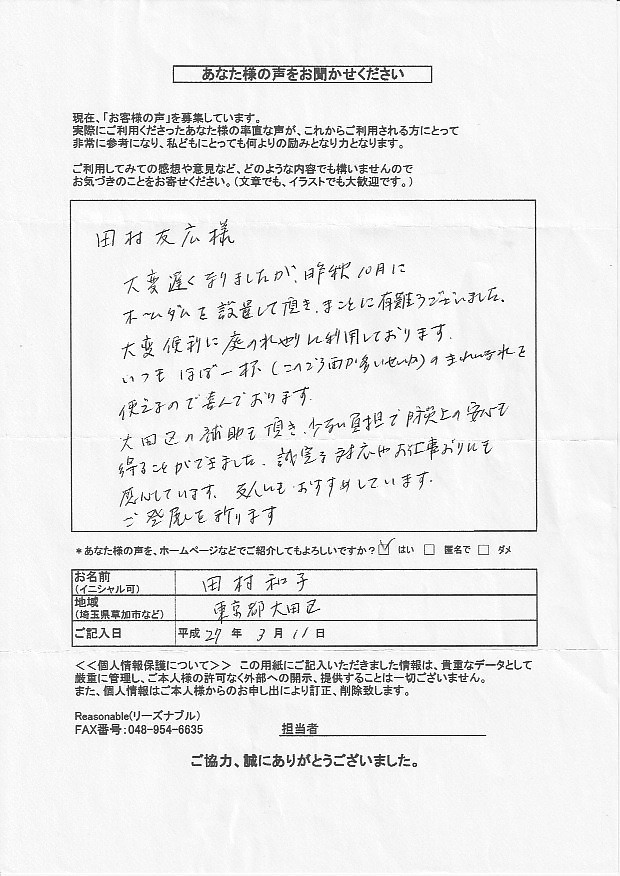 あなた様の声をお聞かせください
現在、「お客様の声」を募集しています。
実際にご利用くださったあなた様の率直な声が、これからご利用される方にとって
非常に参考になり、私どもにとっても何よりの励みとなり力となります。
ご利用してみての感想や意見など、どのような内容でも構いませんので
お気づきのことをお寄せください。(文章でも、イラストでも大歓迎です。)
田村友広様
大変遅くなりましたが、昨秋10月に
ホームダムを設置して頂き、まことに有難うございました。
大変便利に庭の水やりに利用しております。
いつもほぼ一杯(このごろ雨が多いせいか)のきれいな水を
使えるので喜んでおります。
大田区の補助も頂き、少ない負担で防災上の安心も
得ることができました。誠実な対応やお仕事ぶりにも
感心しています。友人にもおすすめしています。
ご発展を祈ります
*あなた様の声を、ホームページなどでご紹介してもよろしいですか? ☑ はい □ 匿名で □ ダメ
お名前
(イニシャル可) 田村和子
地域
(埼玉県草加市など) 東京都大田区
ご記入日 平成 27 年 3 月 11 日
<<個人情報保護について>> この用紙にご記入いただきました情報は、貴重なデータとして
厳重に管理し、ご本人様の許可なく外部への開示、提供することは一切ございません。
また、個人情報はご本人様からのお申し出により訂正、削除致します。
Reasonable(リーズナブル)
FAX番号:048-954-6635 担当者
ご協力、誠にありがとうございました。